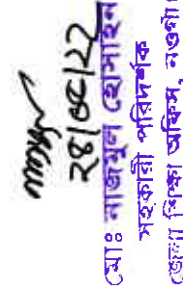 ২৪/০৫/২২
মোঃ নাজমুল হোসাইন
সহকারী পরিদর্শক
জেলা শিক্ষা অফিস, নওগাঁ।